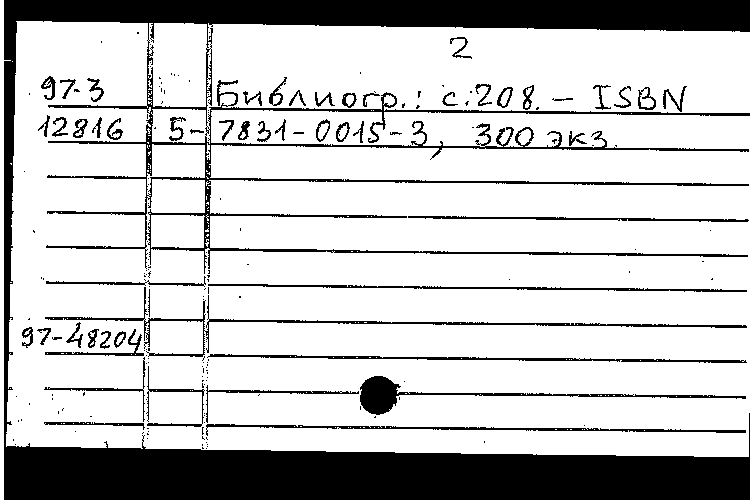 2
97-3 Библиогр.: с.208. — ISBN
12816 5-7831-0015-3, 300 экз.
97-48204